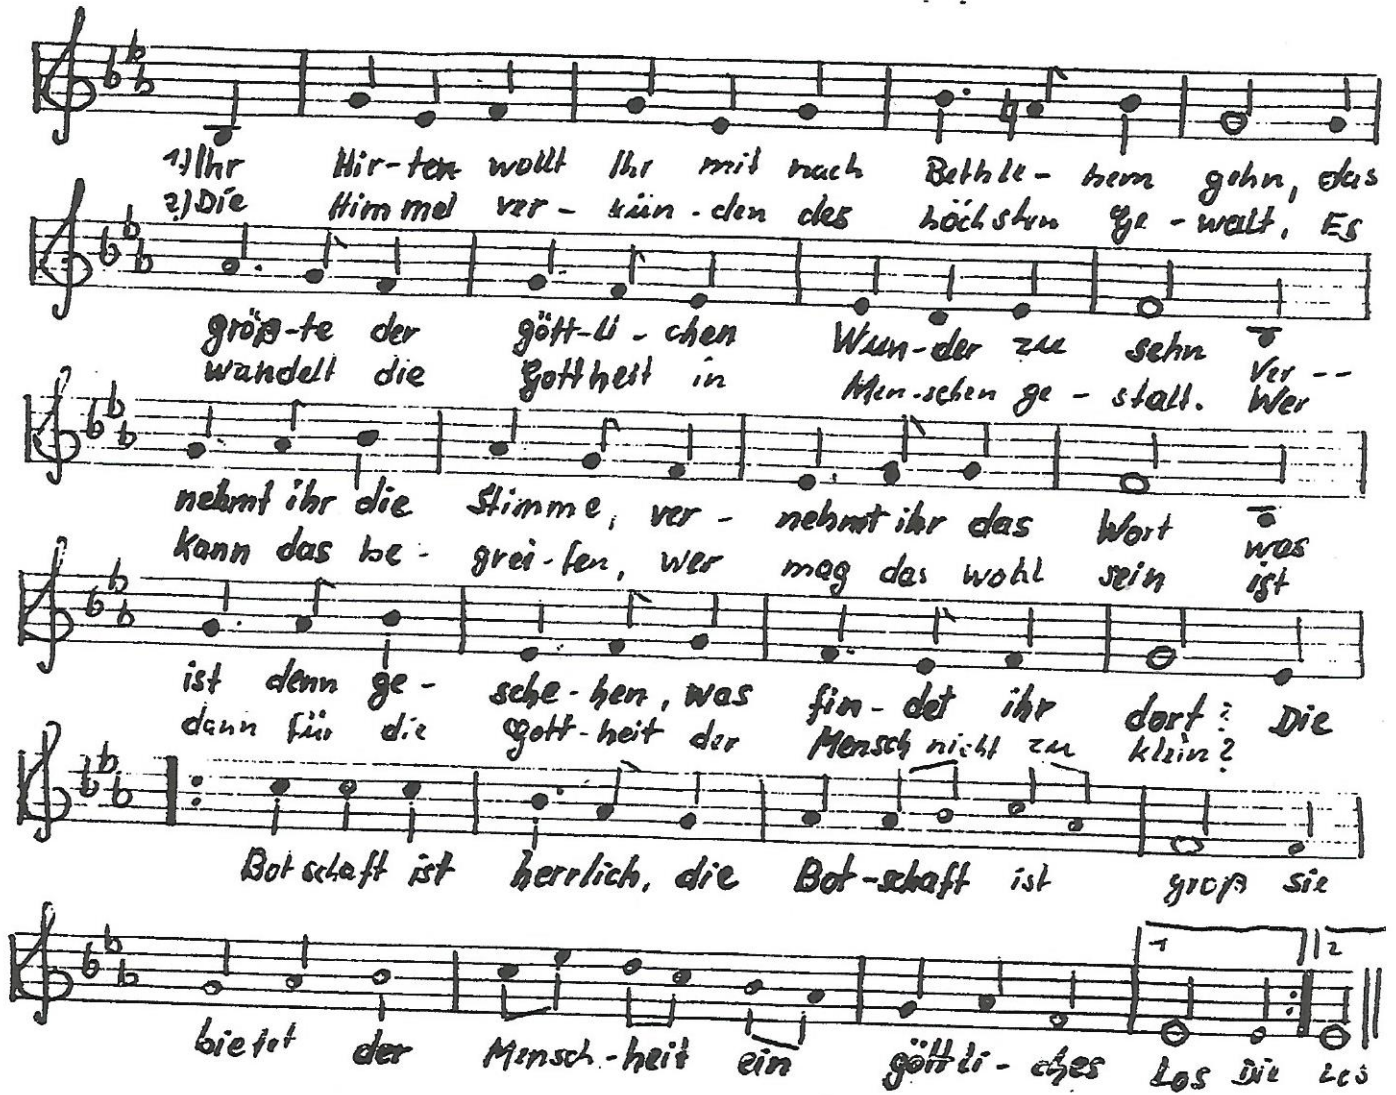 1) Ihr Hir-ten wollt Ihr mit nach Bethle-hem gehn, das
2) Die Himmel ver-kün-den des höchsten Ge-walt, Es
größ-te der gött-li-chen Wun-der zu sehn Ver--
wandelt die Gottheit in Men-schen ge-stalt. Wer
nehmt ihr die Stimme, ver-nehmt ihr das Wort was
kann das be-grei-fen, wer mag das wohl sein ist
ist denn ge-sche-hen, was fin-det ihr dort? Die
dann für die Gott-heit der Mensch nicht zu klein?
Botschaft ist herrlich, die Bot-schaft ist groß sie
1 2
bietet der Mensch-heit ein göttli-ches Los Die Los